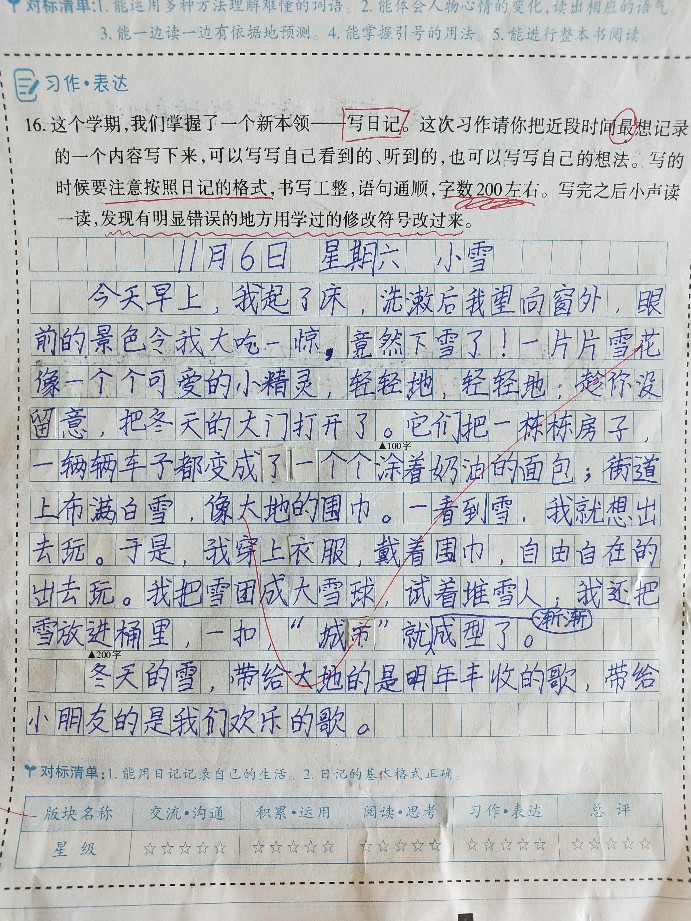 对标清单:1.能运用多种方法理解难懂的词语。2.能体会人物心情的变化,读出相应的语气。
3.能一边读一边有依据地预测。4.能掌握引号的用法。5.能进行整本书阅读。
习作·表达
16.这个学期,我们掌握了一个新本领——写日记。这次习作请你把近段时间最想记录
的一个内容写下来,可以写写自己看到的、听到的,也可以写写自己的想法。写的
时候要注意按照日记的格式,书写工整,语句通顺,字数200左右。写完之后小声读
一读,发现有明显错误的地方用学过的修改符号改过来。
11月6日 星期六 小雪
今天早上,我起了床,洗漱后我望向窗外,眼
前的景色令我大吃一惊,竟然下雪了!一片片雪花
像一个个可爱的小精灵,轻轻地,轻轻地,趁你没
留意,把冬天的大门打开了。它们把一栋栋房子,
▲100字
一辆辆车子都变成了一个个涂着奶油的面包;街道
上布满白雪,像大地的围巾。一看到雪,我就想出
去玩。于是,我穿上衣服,戴着围巾,自由自在的
出去玩。我把雪团成大雪球,试着堆雪人,我还把
雪放进桶里,一扣“城市”就渐渐成型了。
▲200字
冬天的雪,带给大地的是明年丰收的歌,带给
小朋友的是我们欢乐的歌。
对标清单:1.能用日记记录自己的生活。2.日记的基本格式正确。
版块名称 交流·沟通 积累·运用 阅读·思考 习作·表达 总评
星级 ☆☆☆☆☆ ☆☆☆☆☆ ☆☆☆☆☆ ☆☆☆☆☆ ☆☆☆☆☆